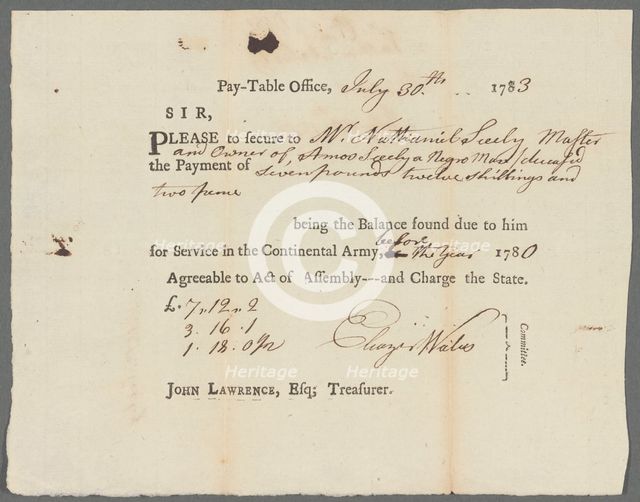 Pay-Table Office, July 30.th 1783
SIR,
PLEASE to secure to Mr. Nathaniel Seely Master
and Owner of, Amos Seely a Negro Man / deceasd
the Payment of Seven pounds twelve shillings and
two pence
being the Balance found due to him
before
for Service in the Continental Army, the Year 1780
Agreeable to Act of Assembly---and Charge the State.
£. 7,, 12,, 2
3. 16. 1
1. 18. 0 1/2
Eleazer Wales
Committee.
JOHN LAWRENCE, Esq; Treasurer.
Heritage
Heritage
Heritage
Heritage
Heritage
Heritage